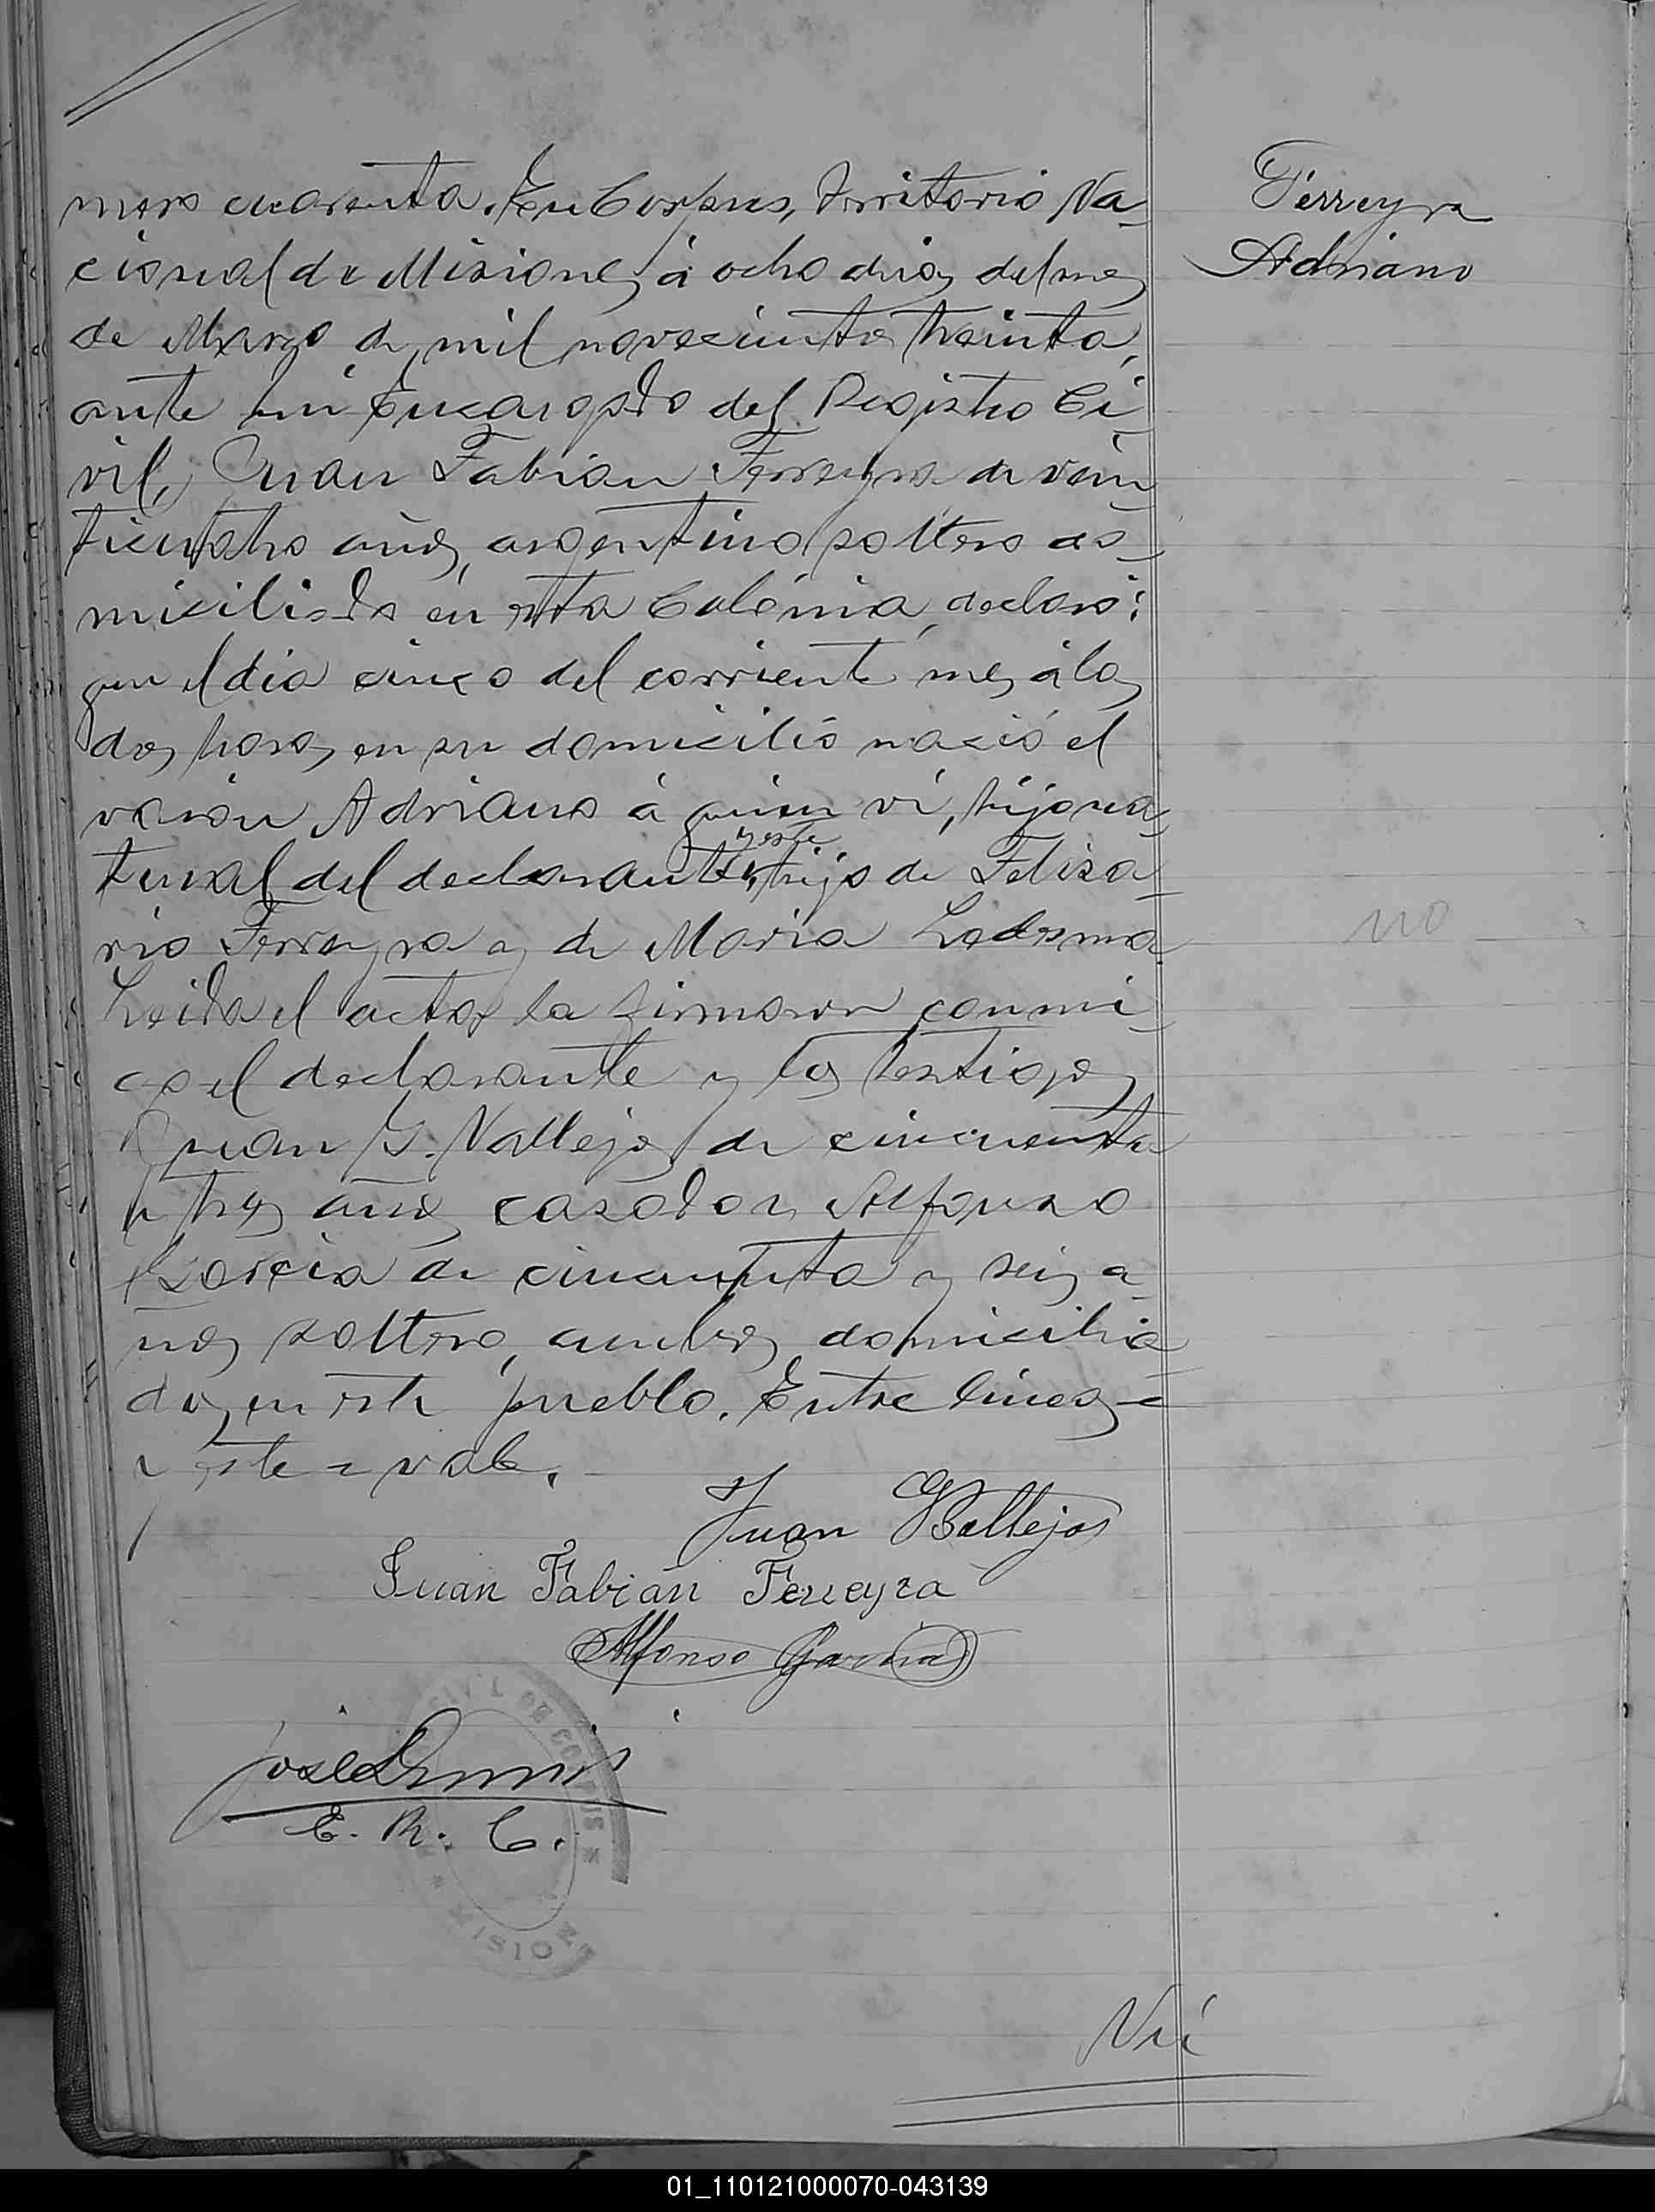 mero cuarenta. En Corpus, Territorio Na-
cional de Misiones, á ocho dias del mes
de Marzo de mil novecientos treinta,
ante mi Encargado del Registro Ci-
vil, Juan Fabian Ferreyra de vein-
ticuatro años, argentino soltero do-
miciliado en esta Colónia, declaró:
que el dia cinco del corriente mes á las
dos horas en su domicilió nació el
varón Adriano á quien ví, hijo na-
tural del declarante, y este hijo de Feliza-
rio Ferreyra y de Maria Ledesma
Leida el acta la firmaron conmi-
go el declarante y los testigos
Juan G. Vallejos de cincuenta
y tres años casado y Alfonso
Garcia de cincuenta y seis a-
ños soltero, ambos domicilia-
dos en este pueblo. Entre lineas =
y este = vale.
Juan G Ballejos
Juan Fabián Ferreyra
Alfonso Garcia
José
E. R. C.
CIVIL DE CORPUS
MISIONES
Ferreyra
Adriano
no
Nú
01_110121000070-043139